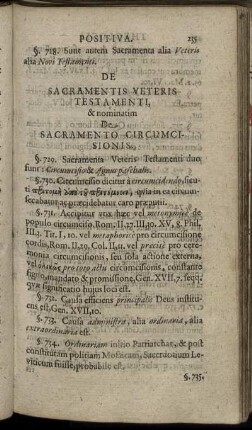 POSITIVA. 235
§. 728. Sunt autem Sacramenta alia Veteris
alia Novi Testamenti.
DE
SACRAMENTIS VETERIS
TESTAMENTI,
& nominatim
De
SACRAMENTO CIRCUMCI-
SIONIS.
§. 729. Sacramenta Veteris Testamenti duo
sunt: Circumcisio & Agnus paschalis.
§. 730. Circumcisio dicitur à circumcidendo, seu
quia in ea circumci-
debatur ac præcidebatur caro præputii.
§. 731. Accipitur vox hæc vel metonymicè de
populo circumciso, Rom. II. 27. III. 30. XV, 8. Phil.
III. 3. Tit. I, 10. vel metaphoricè pro circumcisione
cordis, Rom. II, 29. Col. II, 11. vel precisè pro cere-
monia externa, seu sola actione externa,
vel pro toto actu circumcisionis, constante
signo, mandato & promissione, Gen. XVII, 7. seqq.
quæ significatio hujus loci est.
§. 732. Causa efficiens principalis Deus institu-
ens est, Gen. XVII, 10.
§. 733. Causa administra, alia ordinaria, alia
extraordinaria est.
§. 734. Ordinariam initio Patriarchas, & post
constitutam politiam Mosaicam, Sacerdotium Le-
viticum fuisse, probabile est.
§. 735.